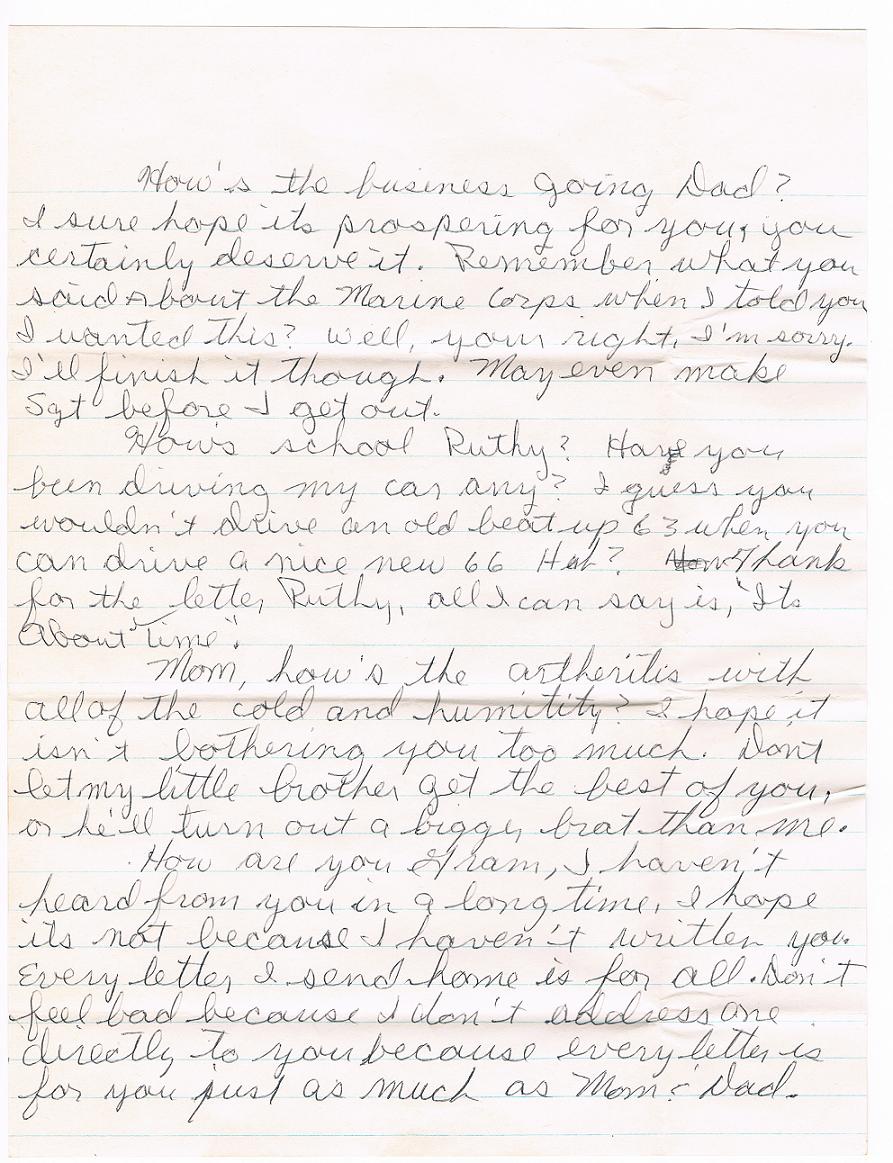 How's the business going Dad?
I sure hope its prospering for you, you
certainly deserve it. Remember what you
said about the Marine Corps when I told you
I wanted this? Well, your right, I'm sorry.
I'll finish it though. May even make
Sgt before I get out.
How's school Ruthy? Have you
been driving my car any? I guess you
wouldn't drive an old beat up 63 when you
can drive a nice new 66 Huh? Thank
for the letter Ruthy, all I can say is, "Its
About Time".
Mom, how's the artheritis with
all of the cold and humitity? I hope it
isn't bothering you too much. Don't
let my little brother get the best of you,
or he'll turn out a bigger brat than me.
How are you Gram, I haven't
heard from you in a long time, I hope
its not because I haven't written you.
Every letter I send home is for all. Don't
feel bad because I don't address one
directly to you because every letter is
for you just as much as Mom & Dad.